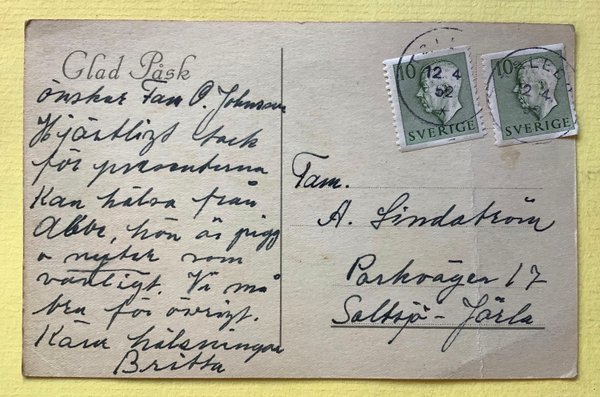 Glad Påsk
önskar Fam O. Johnsson
Hjärtligt tack
för presenterna
Kan hälsa från
Abbe, hön är pigg
o nyter som
vanligt. Vi må
bra för övrigt.
Kära hälsningar
Britta
10
12.4
52
SVERIGE
10
12.4
SVERIGE
Fam.
A. Lindström
Parkvägen 17
Saltsjö-Järla